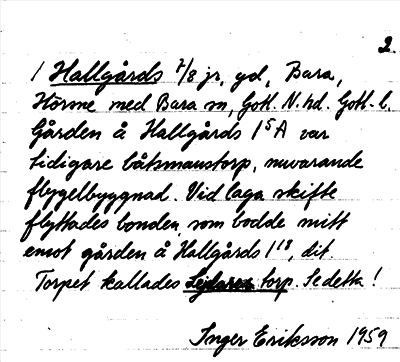 2.
1 Hallgårds 7/8 jr, gd, Bara,
Hörsne med Bara sn, Gotl. N. hd. Gotl. l.
Gården å Hallgårds 1⁵A var
tidigare båtsmanstorp, nuvarande
flygelbyggnad. Vid laga skifte
flyttades bonden, som bodde mitt
emot gården å Hallgårds 1¹⁸, dit.
Torpet kallades torp. Se detta!
Inger Eriksson 1959